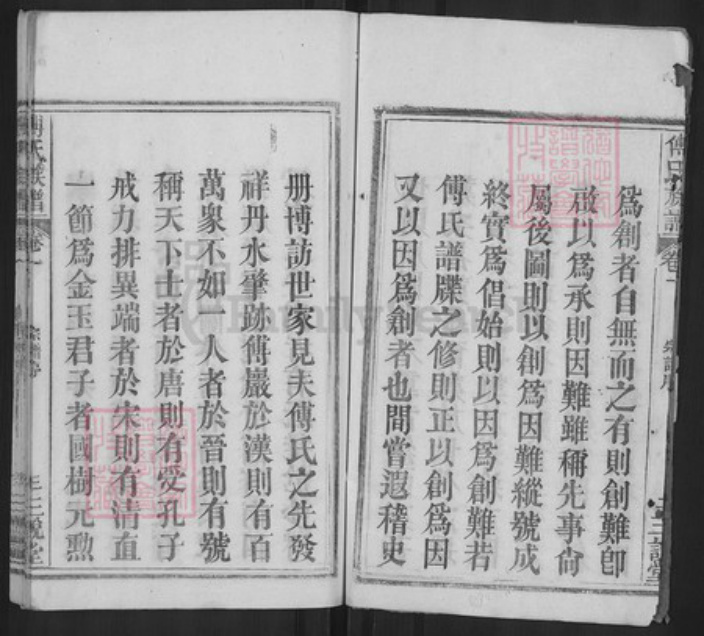 傅氏族譜
卷一
爲創者自無而之有則創難卽
啟以爲承則因難雖稱先事尙
屬後圖則以創爲因難縱號成
終實爲倡始則以因爲創難若
傅氏譜牒之修則正以創爲因
又以因爲創者也間嘗遐稽史
册博訪世家見夫傅氏之先發
祥丹水肇跡傅巖於漢則有百
萬衆不如一人者於晉則有號
稱天下士者於唐則有受孔子
戒力排異端者於宋則有淸直
一節爲金玉君子者國樹元勲
氏族譜
卷一
FamilySearch